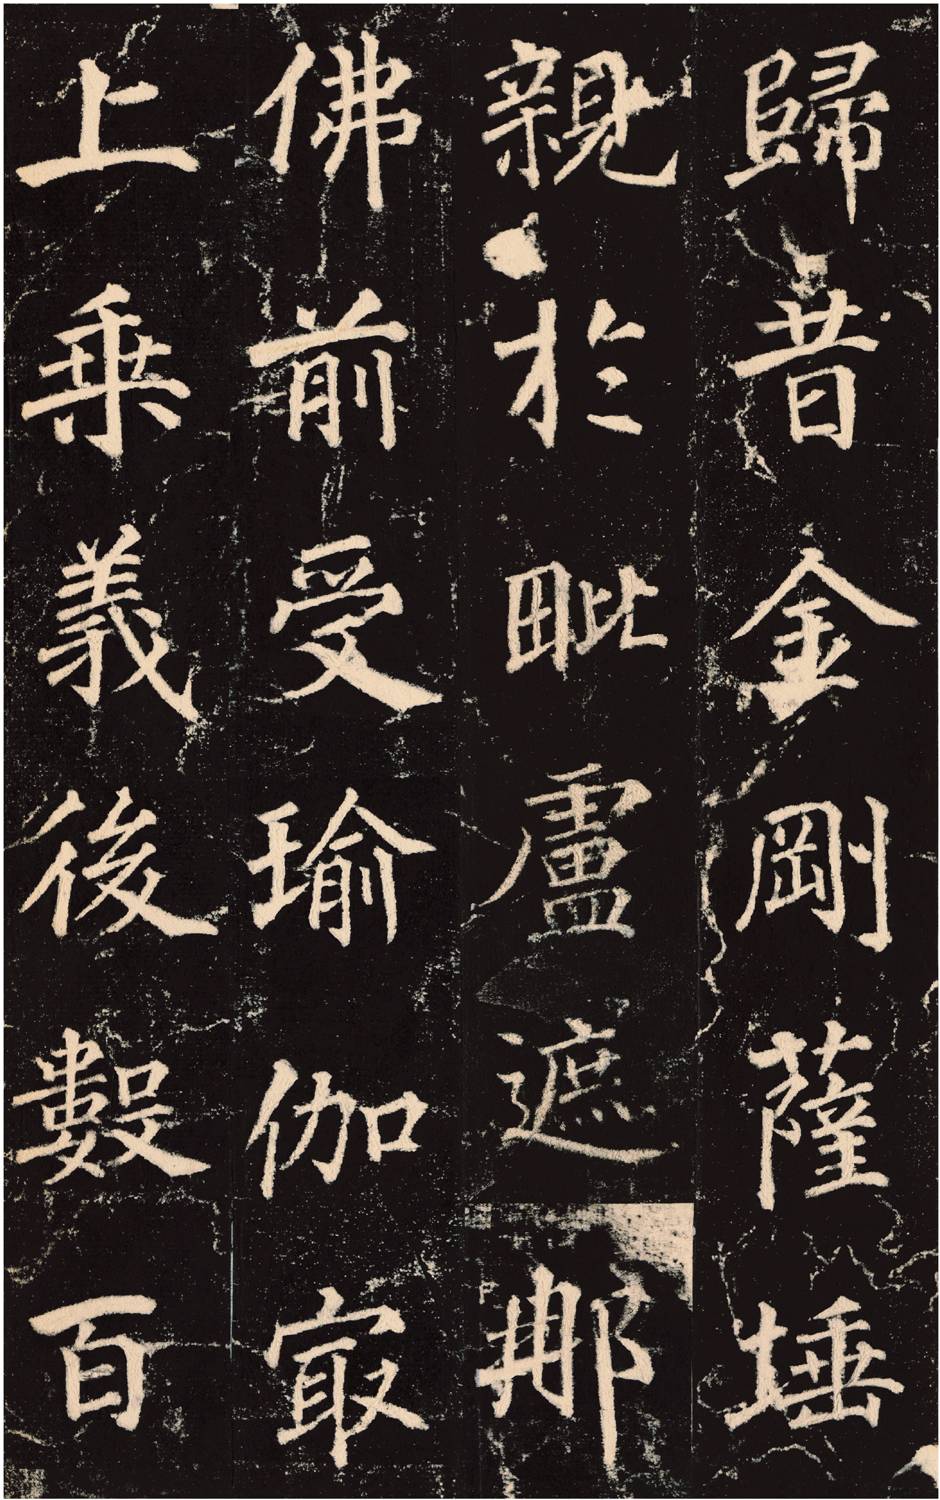 歸昔金剛薩埵
親於毗盧遮那
佛前受瑜伽冣
上乗義後數百